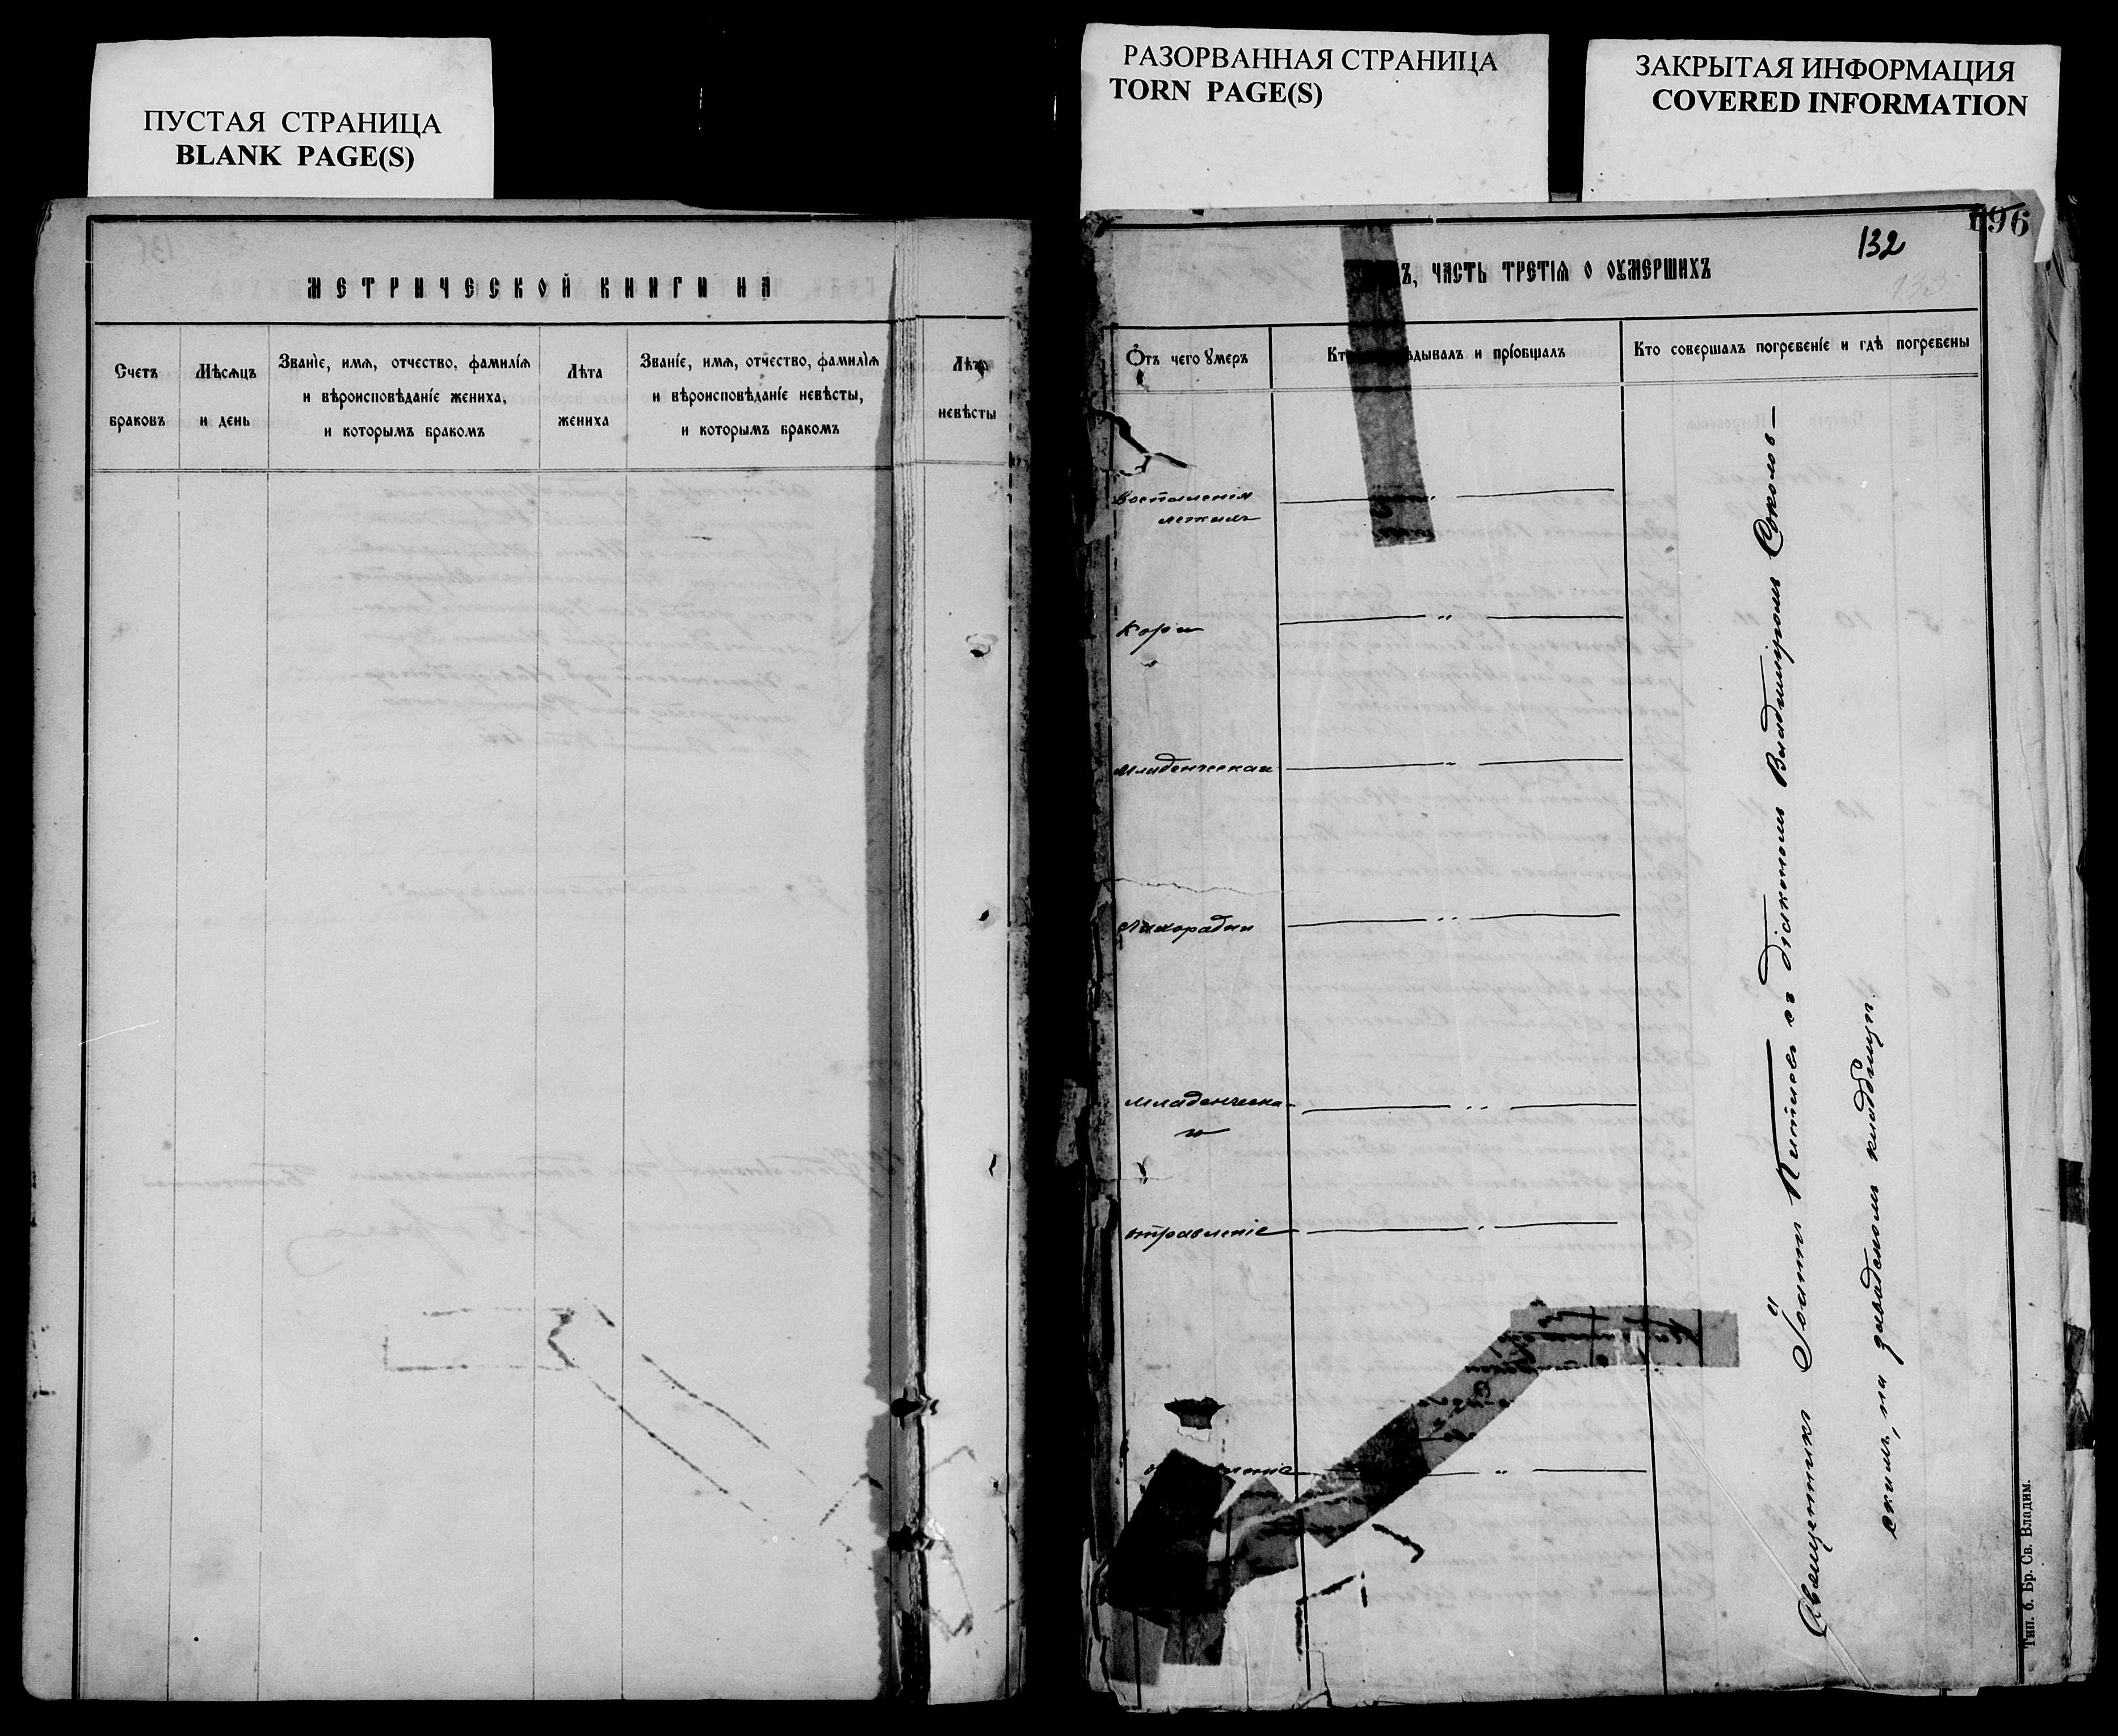 ПУСТАЯ СТРАНИЦА
BLANK PAGE(S)
МЕТРИЧЕСКОЙ КНИГИ НА
Счетъ
браковъ
Мѣсяцъ
и день
Званіе, имя, отчество, фамилія
и вѣроисповѣданіе жениха,
и которымъ бракомъ
Лѣта
жениха
Званіе, имя, отчество, фамилія
и вѣроисповѣданіе невѣсты,
и которымъ бракомъ
Лѣта
невѣсты
РАЗОРВАННАЯ СТРАНИЦА
TORN PAGE(S)
ЗАКРЫТАЯ ИНФОРМАЦИЯ
COVERED INFORMATION
196
132
133
ъ, ЧАСТЬ ТРЕТІЯ О ОУМЕРШИХЪ
Отъ чего умеръ
Кт дывалъ и пріобщалъ
Кто совершалъ погребеніе и гдѣ погребены
Воспаленія
легкихъ
Кори
Младенческая
Лихорадки
Младенческа-
я
отравленіе
леніе
Священникъ Іоаннъ съ діакономъ Владиміромъ Соколов-
скимъ, на заводскомъ кладбищѣ.
Тип. б. Бр. Св. Владим.